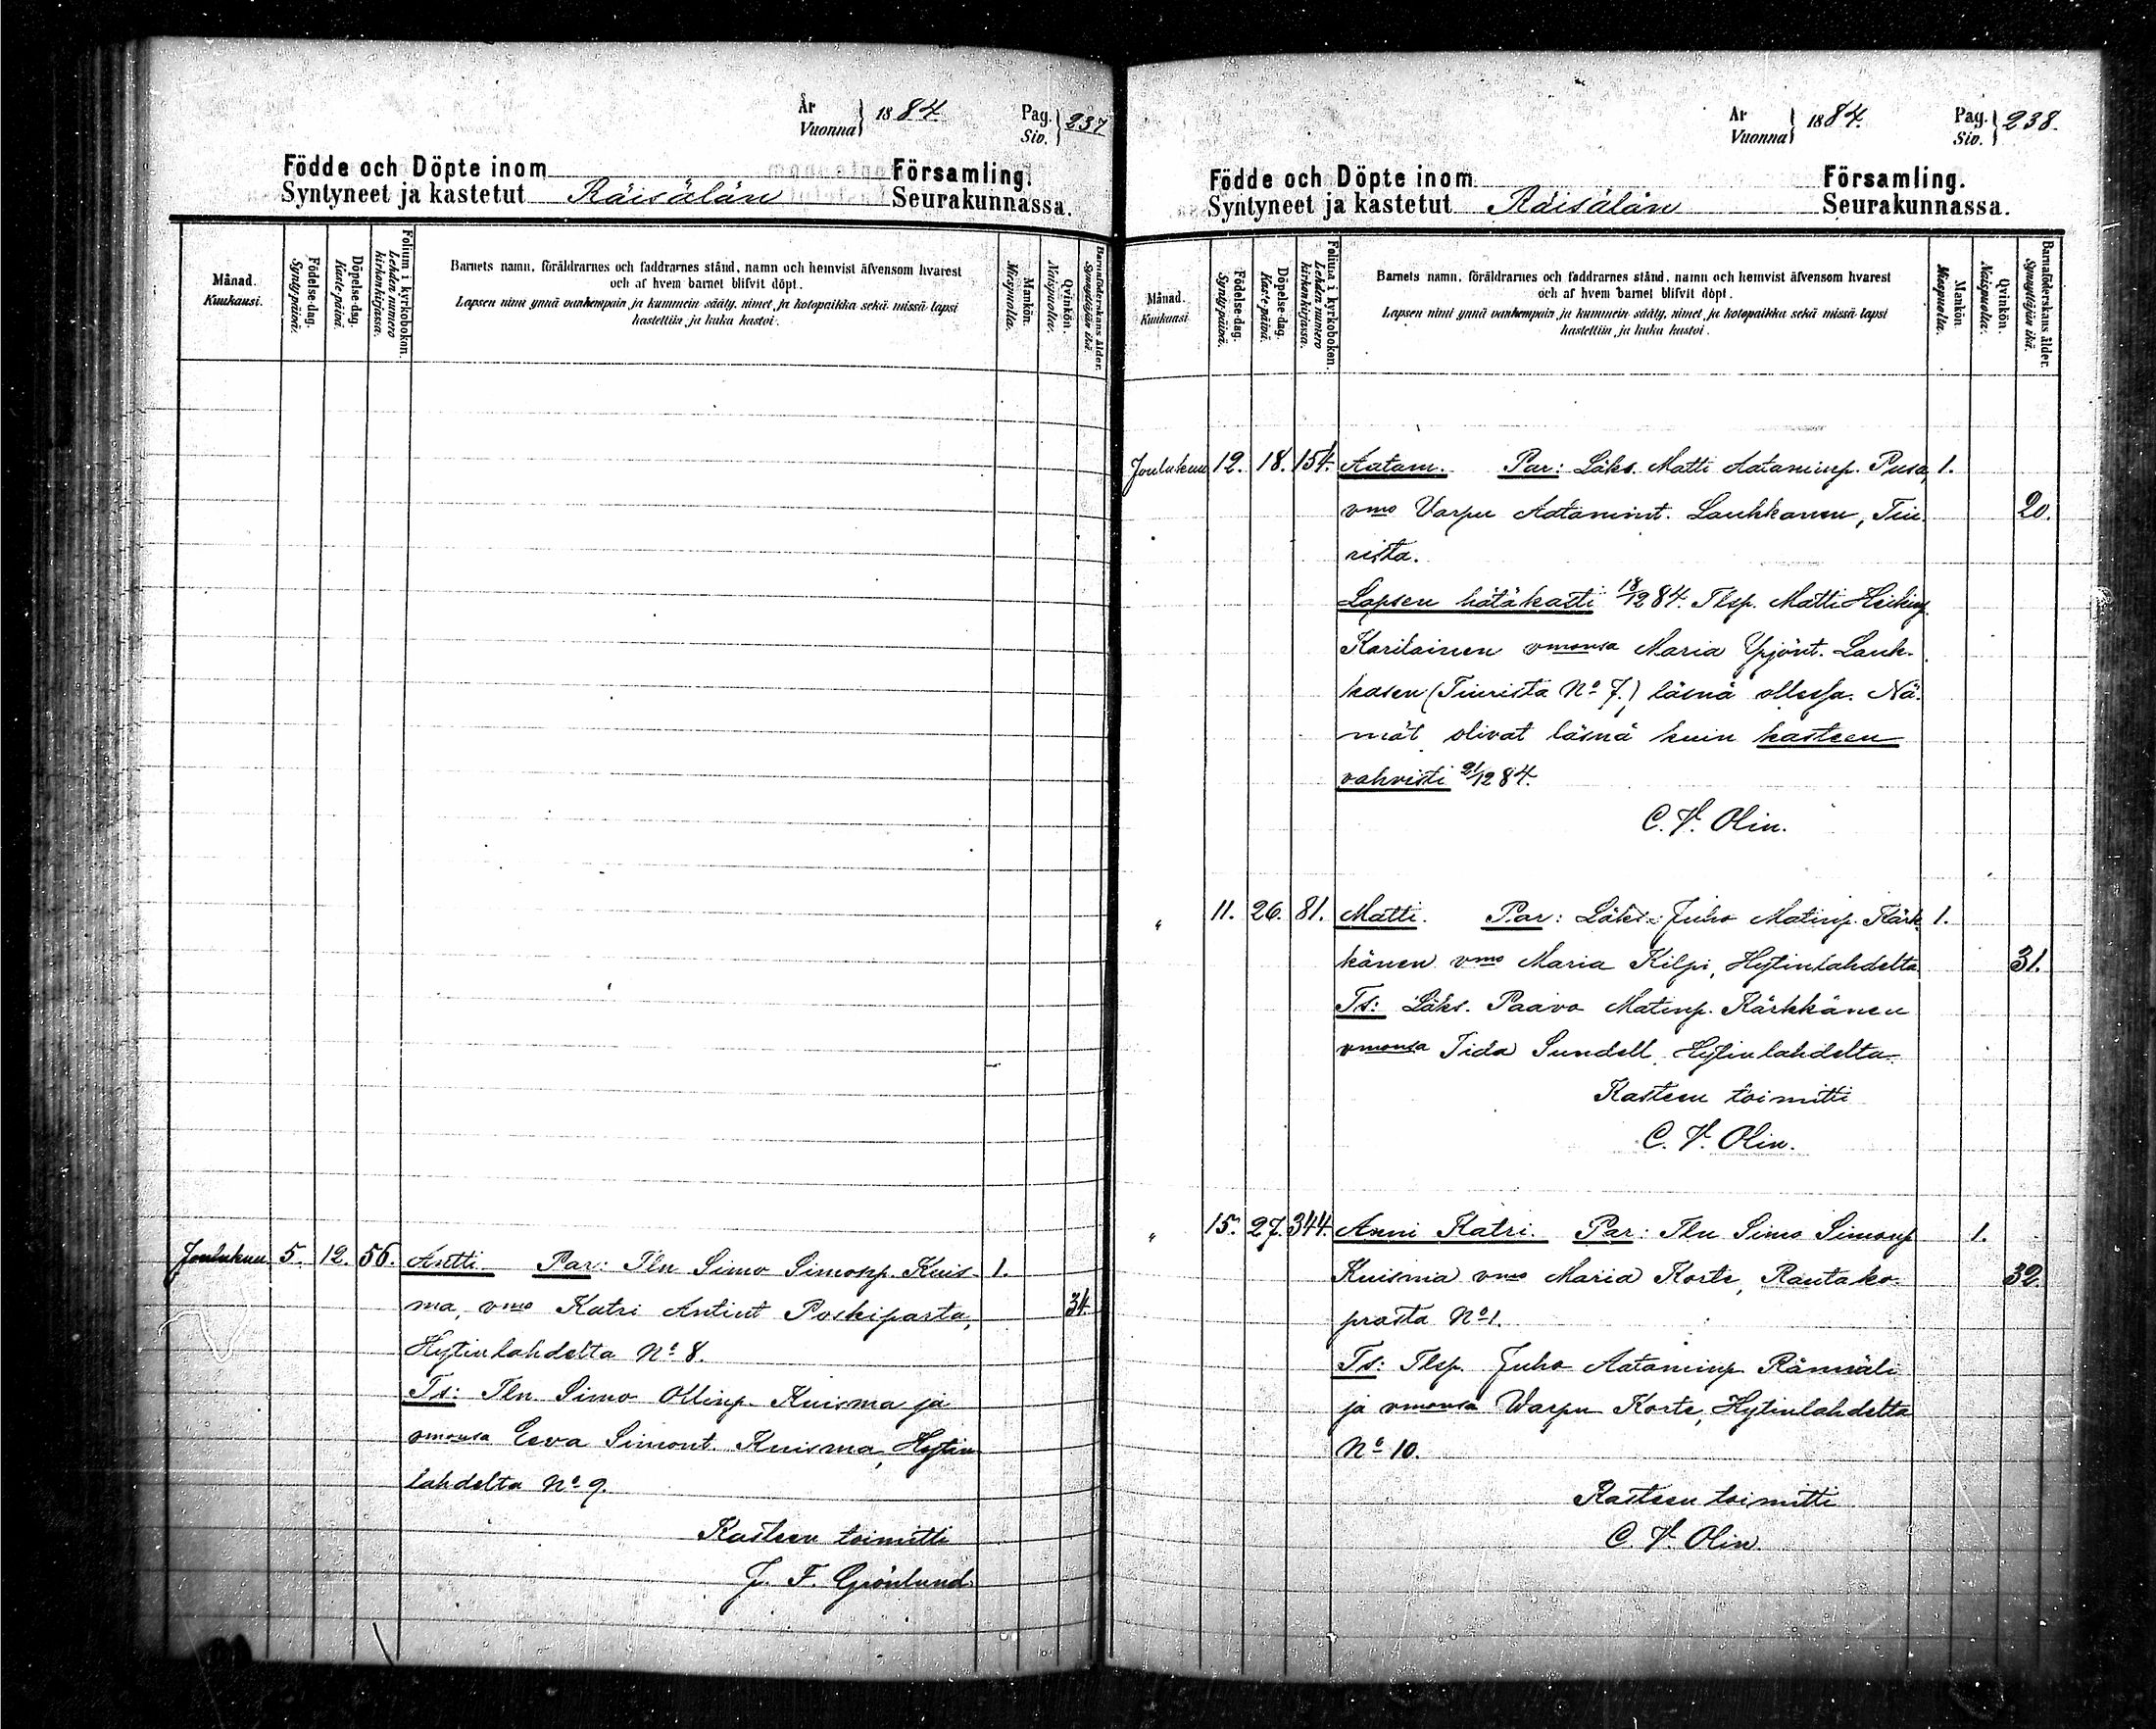 År
Vuonna } 1884. Pag.
Siv. } 237
Födde och Döpte inom Församling.
Syntyneet ja kastetut Räisälän Seurakunnassa.
Månad.
Kuukausi.
Födelse-dag.
Syntypäivä.
Döpelse-dag.
Kaste-päivä.
Folium i kyrkoboken.
Lehden numero
kirkonkirjassa.
Barnets namn, föräldrarnes och faddrarnes stånd, namn och hemvist äfvensom hvarest
och af hvem barnet blifvit döpt.
Lapsen nimi ynnä vanhempain ja kummein sääty, nimet, ja kotopaikka sekä missä lapsi
kastettiin ja kuka kastoi.
Mankön.
Miespuolia.
Qvinkön.
Naispuolia.
Barnaföderskans ålder.
Synnyttäjän ikä.
Joulukuu 5. 12. 56. Antti. Par: Tln Simo Simonp. Kuis- 1.
ma, vmo Katri Antint Poskiparta, 34.
Hytinlahdelta No 8.
Ts: Tln Simo Ollinp. Kuisma ja
vmonsa Eeva Simont. Kuisma, Hytin
lahdelta No 9.
Kasteen toimitti
J. F. Grönlund.
År
Vuonna } 1884. Pag.
Siv. } 238.
Födde och Döpte inom Församling.
Syntyneet ja kastetut Räisälän Seurakunnassa.
Månad.
Kuukausi
Födelse-dag.
Syntypäivä.
Döpelse-dag.
Kaste-päivä.
Folium i kyrkoboken.
Lehden numero
kirkonkirjassa.
Barnets namn, föräldrarnes och faddrarnes stånd, namn och hemvist äfvensom hvarest
och af hvem barnet blifvit döpt.
Lapsen nimi ynnä vanhempain ja kummein sääty, nimet, ja kotopaikka sekä missä lapsi
kastettiin ja kuka kastoi.
Mankön.
Miespuolia.
Qvinkön.
Naispuolia.
Barnaföderskans ålder.
Synnyttäjän ikä.
Joulukuu 12. 18. 154. Aatam. Par: Läks. Matti Aataminp. Pusa, 1.
vmo Varpu Aatamint. Laukkanen, Tiu 20.
rista.
Lapsen hätäkasti 18/12 84. Tlsp. Matti Heikinp.
Karilainen vmonsa Maria Yrjönt. Lauk-
kasen (Tiurista No 7.) läsnä ollessa. Nä-
mät olivat läsnä kuin kasteen
vahvisti 21/12 84.
C. V. Olin.
" 11. 26. 81. Matti. Par: Läks. Juho Matinp. Kärk 1.
känen vmo Maria Kilpi, Hytinlahdelta 31.
Ts: Läks. Paavo Matinp. Kärkkänen
vmonsa Iida Sundell, Hytinlahdelta.
Kasteen toimitti
C. V. Olin.
" 15. 27. 344. Anni Katri. Par: Tln Simo Simonp 1.
Kuisma vmo Maria Korte, Rautako- 32.
prasta No 1.
Ts: Tlsp. Juho Aataminp Rämiäli
ja vmonsa Warpu Korte, Hytinlahdelta
No 10.
Kasteen toimitti
C. V. Olin.